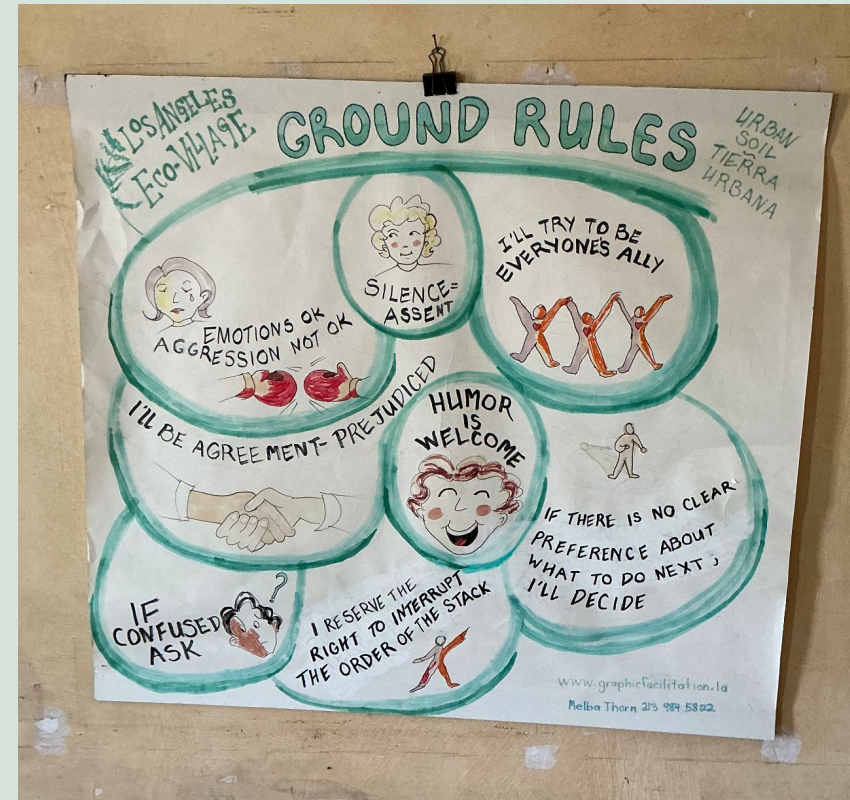 LOS ANGELES
ECO-VILLAGE
GROUND RULES
URBAN
SOIL
TIERRA
URBANA
EMOTIONS OK
AGGRESSION NOT OK
SILENCE=
ASSENT
I'LL TRY TO BE
EVERYONE'S ALLY
I'LL BE AGREEMENT-PREJUDICED
HUMOR
IS
WELCOME
IF THERE IS NO CLEAR
PREFERENCE ABOUT
WHAT TO DO NEXT,
I'LL DECIDE
IF
CONFUSED
ASK
?
I RESERVE THE
RIGHT TO INTERRUPT
THE ORDER OF THE STACK
www.graphicfacilitation.la
Melba Thorn 213 984 5822